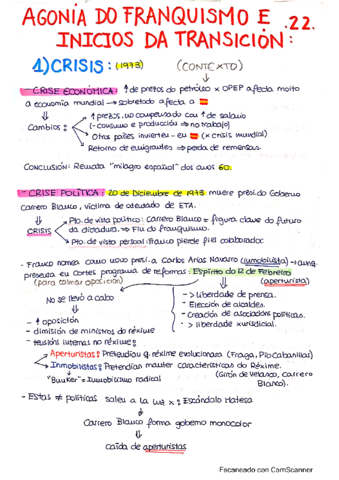 AGONÍA DO FRANQUISMO E .22.
INICIOS DA TRANSICIÓN:
1) CRISIS: (1973) (CONTEXTO)
- CRISE ECONÓMICA: ↑ de prezos do petróleo x OPEP afecta moito
á economía mundial → sobretodo afecta a 🇪🇸
Cambios: ↑ prezos, no compensado cou ↑ de salario
(- consumo e producción => no traballo)
Otros países invierten - eu 🇪🇸 (x crisis mundial)
Retorno de emigrantes => perda de remensas.
CONCLUSIÓN: Remata "milagro español" dos anos 60.
- CRISE POLÍTICA: 20 de Diciembre de 1973 muere président do Goberno
Carrero Blanco, víctima de atentado de ETA.
CRISIS
Pto. de vista político: Carrero Blanco = figura clave do futuro
da dictadura => Fin do franquismo.
Pto. de vista persoal: Franco pierde fiel colaborador
- Franco nomea como novo presi. a Carlos Arias Navarro (inmobilista) →
presenta eu Cortes programa de reformas: Espírito do 12 de Febreiro
(para calmar oposición) (aperturista)
No se llevó a cabo
- > liberdade de prensa.
- Elección de alcaldes.
- Creación de asociacións políticas.
- > liberdade xurisdicial.
- ↑ oposición
- dimisión de ministros do réxime
- tensións internas no réxime:
Aperturistas: Pretendían q. réxime evolucionara (Fraga, Pío Cabanillas)
Inmobilistas: Pretendían manter características do Réxime.
(Girón de Velasco, Carrero
Blanco).
"Bunker" = Inmobilismo radical
- Estas ≠ políticas saleu a la luz x: Escándalo Matesa
Carrero Blanco forma goberno monocolor
caída de aperturistas
Escaneado con CamScanner